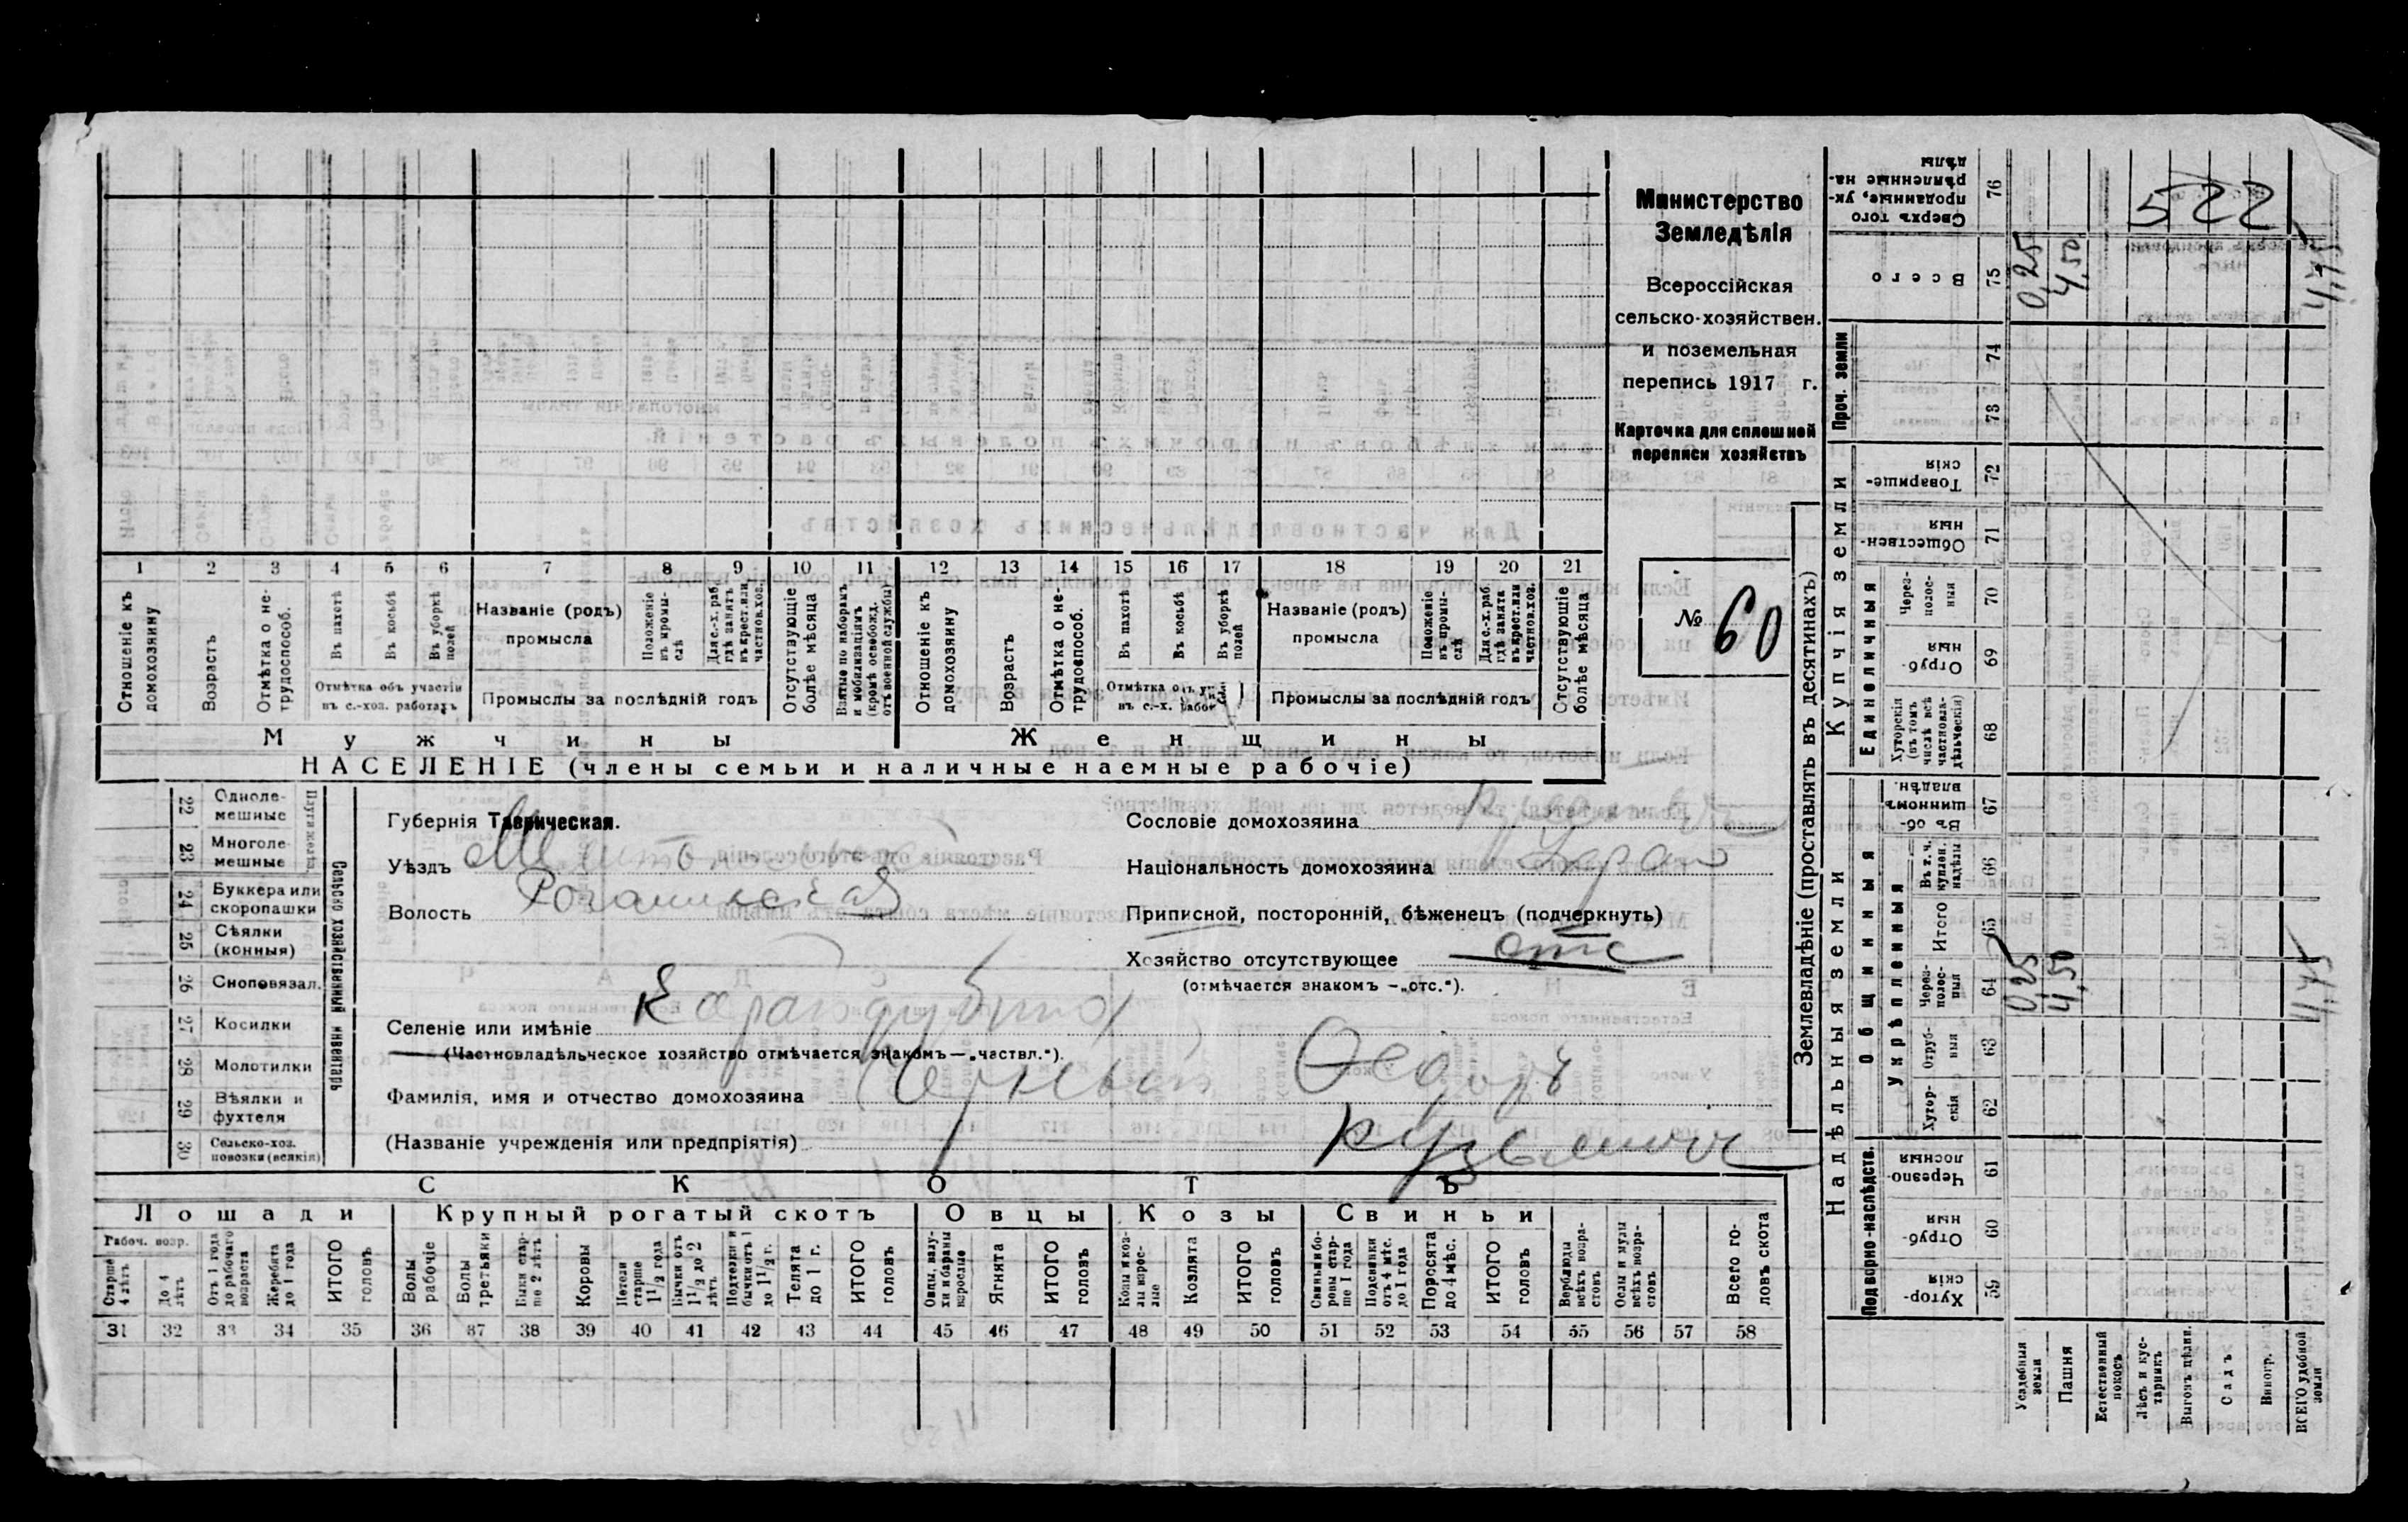 Министерство
Земледѣлія
Всероссійская
сельско-хозяйствен.
и поземельная
перепись 1917 г.
Карточка для сплошной
переписи хозяйствъ
№ 60
1 2 3 4 5 6 7 8 9 10 11 12 13 14 15 16 17 18 19 20 21
Отношеніе къ домохозяину
Возрастъ
Отмѣтка о не-трудоспособ.
Въ пахотѣ
Въ косьбѣ
Въ уборкѣ полей
Отмѣтка объ участіи въ с.-хоз. работахъ
Названіе (родъ) промысла
Положеніе въ промы-слѣ
Для с.-х. раб. гдѣ занятъ въ крест. или частновл. хоз.
Промыслы за послѣдній годъ
Отсутствующіе болѣе мѣсяца
Взятые по наборамъ и мобилизаціямъ (кромѣ освобожд. отъ военной службы)
Отношеніе къ домохозяину
Возрастъ
Отмѣтка о не-трудоспособ.
Въ пахотѣ
Въ косьбѣ
Въ уборкѣ полей
Отмѣтка объ уч. въ с.-х. работ.
Названіе (родъ) промысла
Положеніе въ промы-слѣ
Для с.-х. раб. гдѣ занята въ крест. или частнов. хоз.
Промыслы за послѣдній годъ
Отсутствующіе болѣе мѣсяца
Мужчины Женщины
НАСЕЛЕНІЕ (члены семьи и наличные наемные рабочіе)
22 Одноле-мешные
23 Многоле-мешные
24 Буккера или скоропашки
25 Сѣялки (конныя)
26 Сноповязал.
27 Косилки
28 Молотилки
29 Вѣялки и фухтеля
30 Сельско-хоз. повозки (всякія)
Сельско хозяйственный инвентарь
Губернія Таврическая.
Уѣздъ
Волость Рогачикская
Селеніе или имѣніе Карайдубина
(Частновладѣльческое хозяйство отмѣчается знакомъ — „частвл.“).
Фамилія, имя и отчество домохозяина Черный Ѳедоръ
(Названіе учрежденія или предпріятія) Кузьмичъ
Сословіе домохозяина
Національность домохозяина Украи
Приписной, посторонній, бѣженецъ (подчеркнуть)
Хозяйство отсутствующее отс
(отмѣчается знакомъ — „отс.“).
СКОТЪ
Лошади Крупный рогатый скотъ Овцы Козы Свиньи
Рабоч. возр.
Старше 4 лѣтъ
До 4 лѣтъ
Отъ 1 года до рабочаго возраста
Жеребята до 1 года
ИТОГО головъ
Волы рабочіе
Волы третьяки
Быки стар-ше 2 лѣтъ
Коровы
Нетели старше 1 1/2 года
Бычки отъ 1 1/2 до 2 лѣтъ
Подтелки и бычки отъ 1 до 1 1/2 г.
Телята до 1 г.
ИТОГО головъ
Овцы, валу-хи и бараны взрослые
Ягнята
ИТОГО головъ
Козы и коз-лы взрос-лые
Козлята
ИТОГО головъ
Свиньи и бо-ровы стар-ше 1 года
Подсвинки отъ 4 мѣс. до 1 года
Поросята до 4 мѣс.
ИТОГО головъ
Верблюды всѣхъ возра-стовъ
Ослы и мулы всѣхъ возра-стовъ
Всего го-ловъ скота
31 32 33 34 35 36 37 38 39 40 41 42 43 44 45 46 47 48 49 50 51 52 53 54 55 56 57 58
Землевладѣніе (проставлять въ десятинахъ)
Надѣльныя земли
Купчія земли
Проч. земли
Подворно-наслѣдств.
Общинныя
Укрѣпленныя
Единоличныя
Хутор-скія 59
Отруб-ныя 60
Черезпо-лосныя 61
Хутор-скія 62
Отруб-ныя 63
Через-полос-ныя 64
Итого 65
Въ т. ч. куплен. надѣлы 66
Въ об-щинномъ владѣн. 67
Хуторскія (въ томъ числѣ всѣ частновла-дѣльческія) 68
Отруб-ныя 69
Через-полос-ныя 70
Обществен-ныя 71
Товарище-скія 72
73
74
Всего 75
Сверхъ того проданные, ук-рѣпленные на-дѣлы 76
Усадебныя земли 0,25 0,25
Пашня 4,50 4,50
Естественный покосъ
Лѣсъ и кус-тарникъ
Выгонъ цѣлин.
Садъ
Виногр.
ВСЕГО удобной земли 4,75 4,75
522